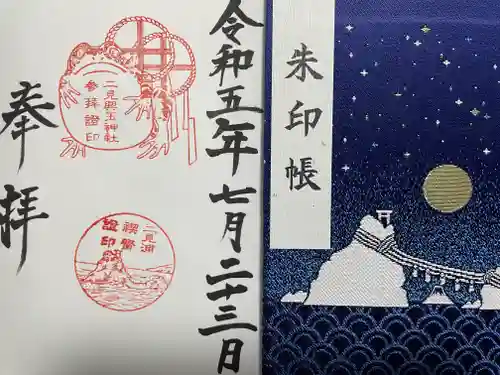 朱印帳
令和五年七月二十三日
二見興玉神社
参拝證印
二見浦
禊
證印
奉拝